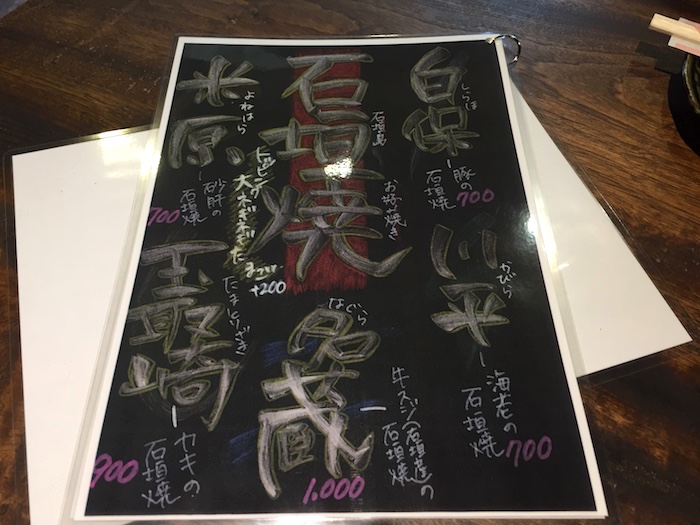 石垣焼
石垣島
お好み焼き
白保
しらほ
ー豚の
石垣焼
700
川平
かびら
ー海老の
石垣焼
700
名蔵
なぐら
ー牛スジ(石垣産)の
石垣焼
1.000
米原
よねはら
ー砂肝の
石垣焼
700
トッピング
大ネギネギ
+200
玉取崎
たまとりざき
ーカキの
石垣焼
900